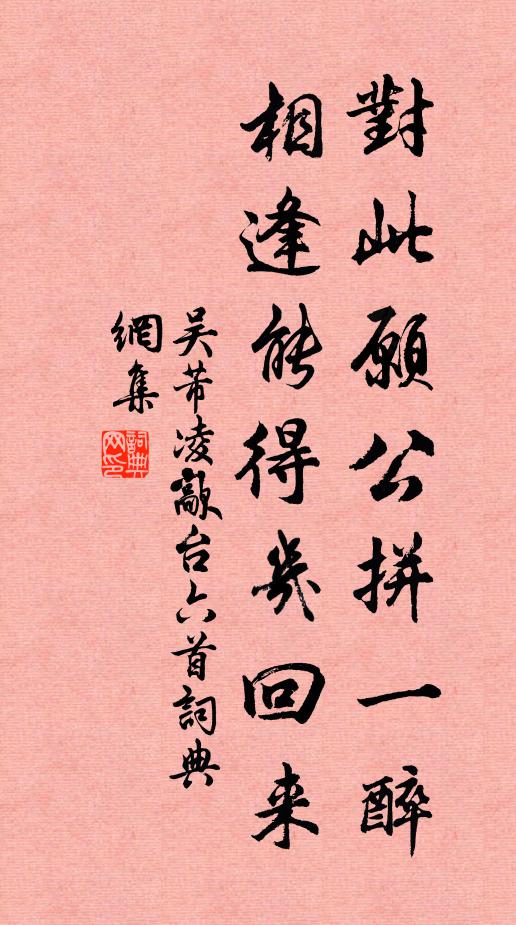 對此願公拼一醉
相逢能得幾回来
吴芾凌敲台六首詞典
網集
詞典
网印